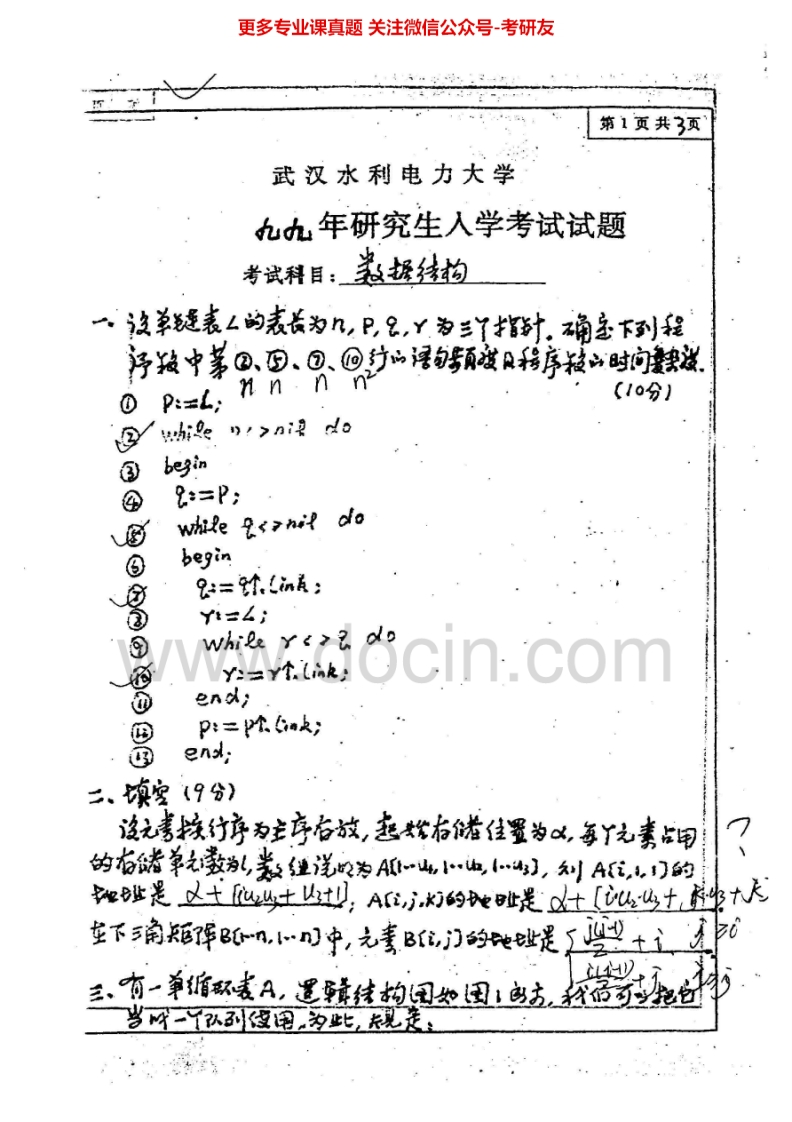 更多专业课真题 关注微信公众号-考研友
第1页共3页
武汉水利电力大学
九九年研究生入学考试试题
考试科目：数据结构
一、设单链表L的表长为n, P, q, r 为三个指针。确定下列程
序段中第②、⑤、⑦、⑩行的语句频度及程序段的时间复杂度.
n n n n²
(10分)
① P:=L;
② while <>nil do
③ begin
④ q:=P;
⑤ while q<>nil do
⑥ begin
⑦ q:=q↑.link;
⑧ r:=L;
⑨ while r<>q do
⑩ r:=r↑.link;
⑪ end;
⑫ p:=p↑.link;
⑬ end;
www.docin.com
二、填空 (9分)
设元素按行序为主序存放, 起始存储位置为α, 每个元素占用
的存储单元数为l, 数组说明为A[1..u₁, 1..u₂, 1..u₃], 则 A[i,1,1]的
地址是 α+[iu₂u₃+u₃+1]; A[i,j,k]的地址是 α+[i·u₂·u₃+
在下三角矩阵B[1..n, 1..n]中, 元素B[i,j]的地址是
三、有一单循环表A, 逻辑结构图如图1所示, 我们可以把它
当成一个队列使用, 为此, 规定: